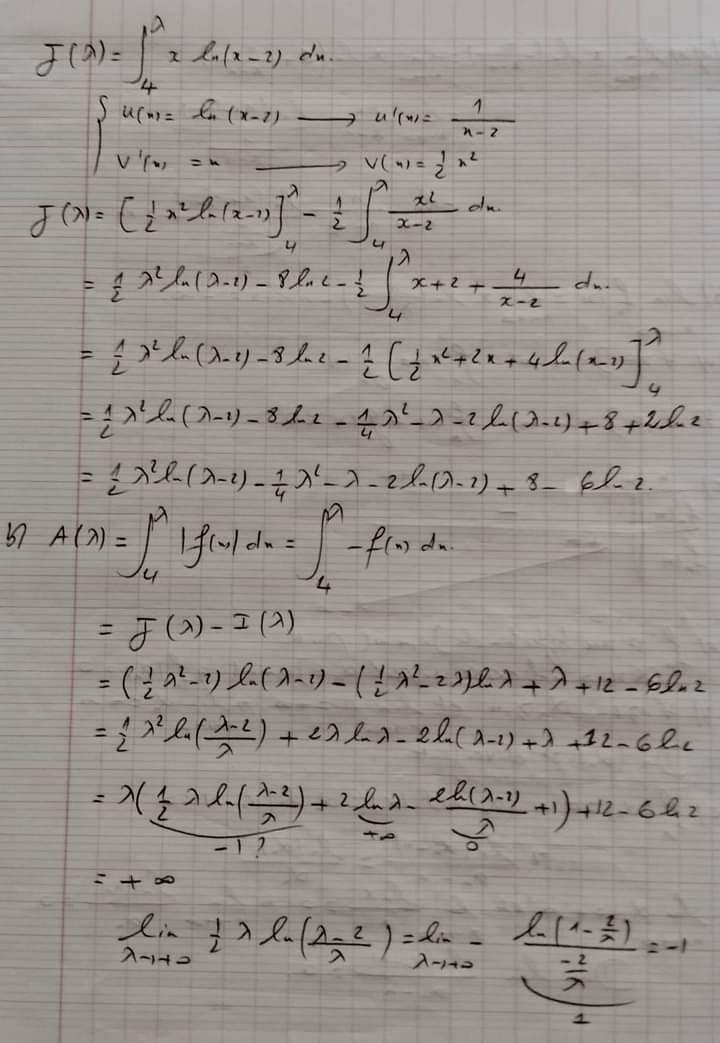 J(λ) = ∫₄^λ x ln(x-2) dx.
{ u(x) = ln(x-2) ⟶ u'(x) = 1/(x-2)
v'(x) = x ⟶ v(x) = 1/2 x²
J(λ) = [1/2 x² ln(x-2)]₄^λ - 1/2 ∫₄^λ x²/(x-2) dx.
= 1/2 λ² ln(λ-2) - 8 ln 2 - 1/2 ∫₄^λ x + 2 + 4/(x-2) dx.
= 1/2 λ² ln(λ-2) - 8 ln 2 - 1/2 [1/2 x² + 2x + 4 ln(x-2)]₄^λ
= 1/2 λ² ln(λ-2) - 8 ln 2 - 1/4 λ² - λ - 2 ln(λ-2) + 8 + 2 ln 2
= 1/2 λ² ln(λ-2) - 1/4 λ² - λ - 2 ln(λ-2) + 8 - 6 ln 2.
b) A(λ) = ∫₄^λ |f(x)| dx = ∫₄^λ -f(x) dx.
= J(λ) - I(λ)
= (1/2 λ² - 2) ln(λ-2) - (1/2 λ² - 2λ) ln λ + λ + 12 - 6 ln 2
= 1/2 λ² ln((λ-2)/λ) + 2λ ln λ - 2 ln(λ-2) + λ + 12 - 6 ln 2
= λ(1/2 λ ln((λ-2)/λ) + 2 ln λ - 2 ln(λ-2)/λ + 1) + 12 - 6 ln 2
-1? +∞ 0
= +∞
lim λ→+∞ 1/2 λ ln((λ-2)/λ) = lim λ→+∞ - ln(1 - 2/λ)/(-2/λ) = -1
1